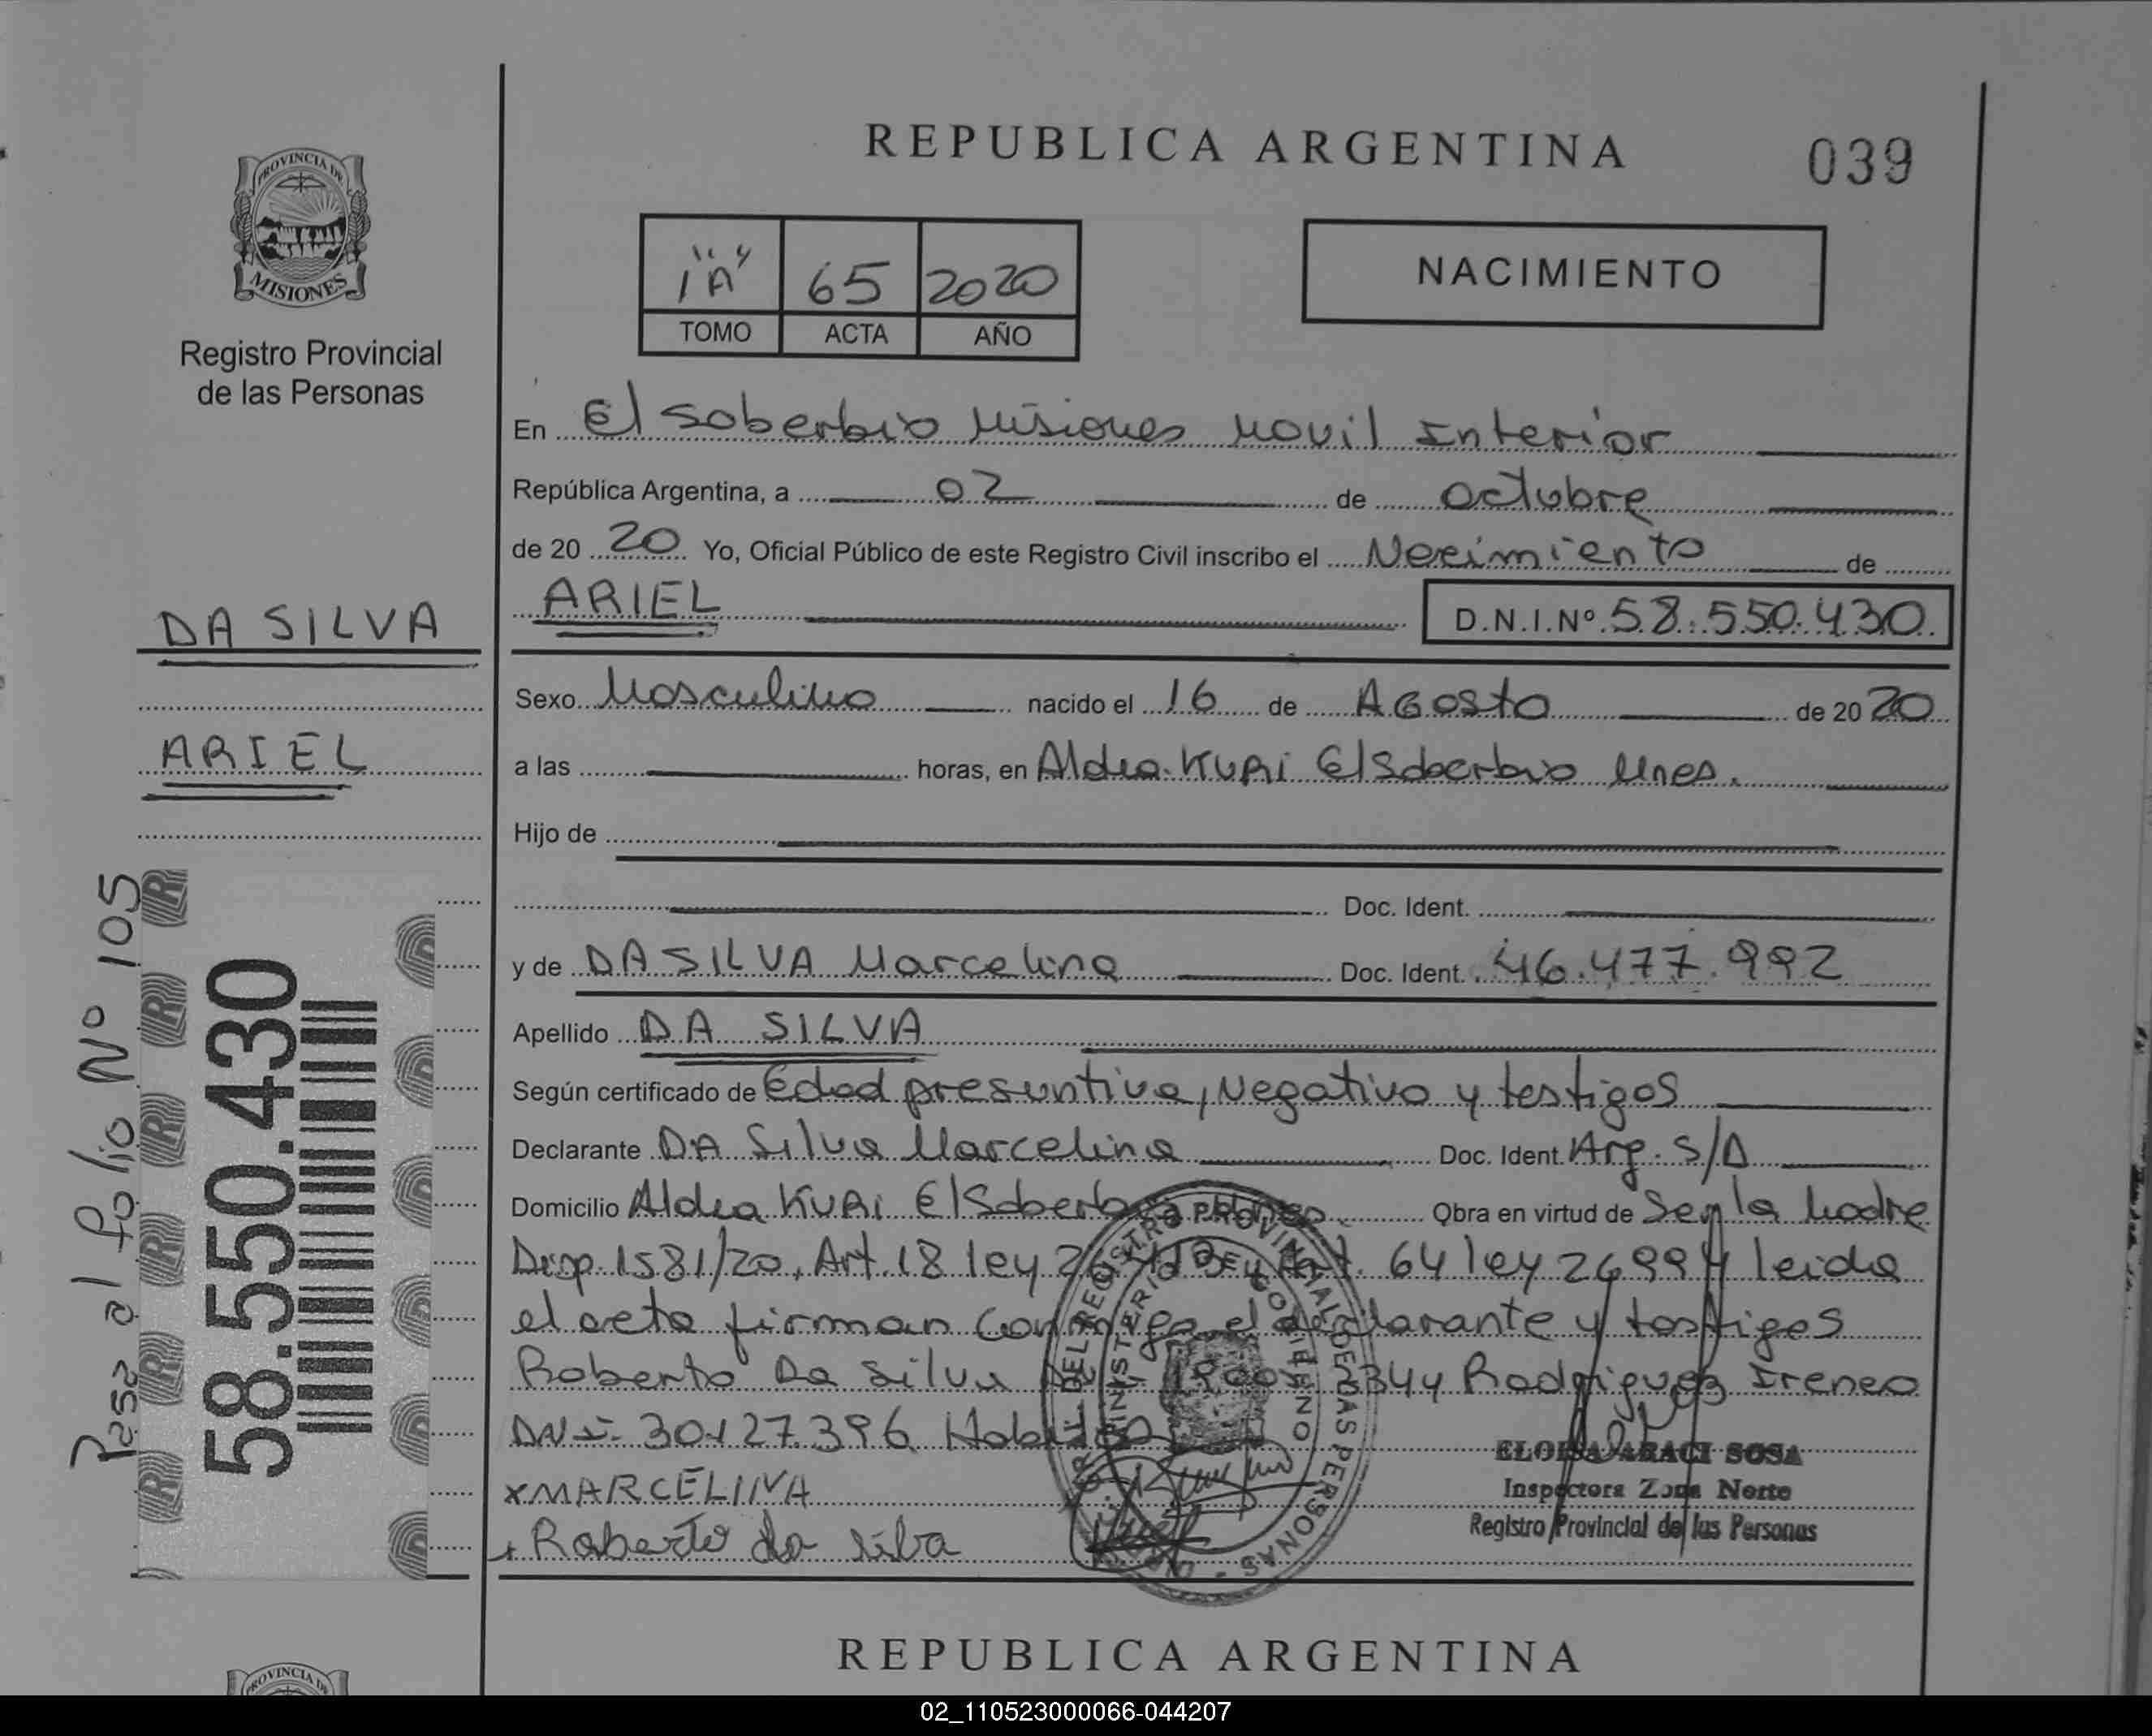 REPUBLICA ARGENTINA
039
PROVINCIA DE
MISIONES
Registro Provincial
de las Personas
1"A" 65 2020
TOMO ACTA AÑO
NACIMIENTO
En El soberbio Misiones Movil Interior
República Argentina, a 02 de octubre
de 20 20 Yo, Oficial Público de este Registro Civil inscribo el Nacimiento de
ARIEL D.N.I.Nº 58.550.430
DA SILVA
ARIEL
Sexo Masculino nacido el 16 de AGosto de 20 20
a las horas, en Aldea KURi El Soberbio Mnes.
Hijo de
Doc. Ident.
y de DA SILVA Marcelina Doc. Ident. 46.477.992
Apellido DA SILVA
Según certificado de Edad presuntiva, Negativo y testigos
Declarante DA Silva Marcelina Doc. Ident. Arg. S/D
Domicilio Aldea KURi El Soberbio Mnes. Obra en virtud de Seg la Madre
Disp. 1581/20, Art. 18 ley Art. 64 ley 26994 leida
el acta firman conmigo el declarante y testigos
Roberto Da Silva 344 Rodriguez Ireneo
DNI- 30.127.396
x MARCELINA
x Roberto da silba
ELOISA ARACI SOSA
Inspectora Zona Norte
Registro Provincial de las Personas
DEL REGISTRO PROVINCIAL DE LAS PERSONAS
MINISTERIO DE GOBIERNO
Pasa al folio Nº 105
58.550.430
REPUBLICA ARGENTINA
PROVINCIA DE
02_110523000066-044207